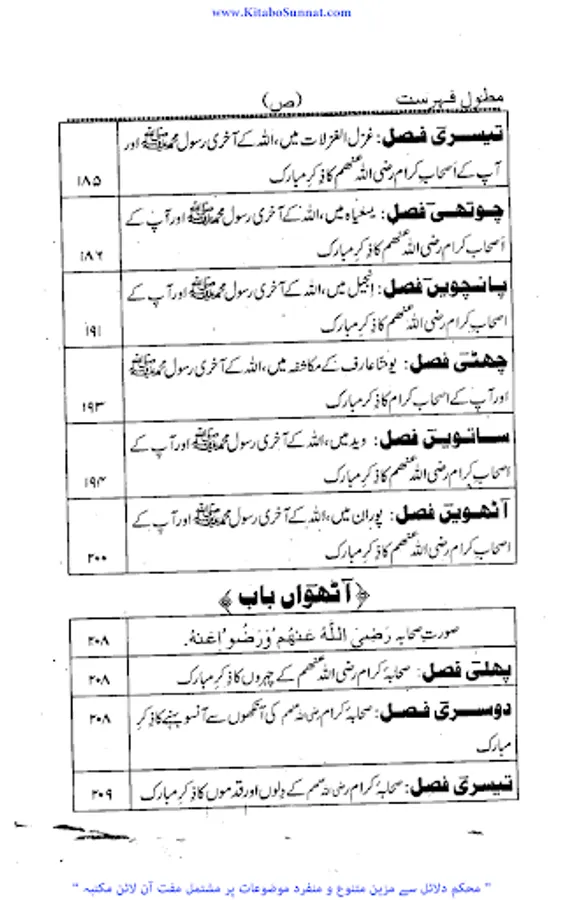 www.KitaboSunnat.com
مطول فہرست (ص)
تیسری فصل: غزل الغزلات میں، اللہ کے آخری رسول محمد ﷺ اور
آپ کے اصحاب کرام رضی اللہ عنھم کا ذکر مبارک ۱۸۵
چوتھی فصل: یسعیاہ میں، اللہ کے آخری رسول محمد ﷺ اور آپ کے
اصحاب کرام رضی اللہ عنھم کا ذکر مبارک ۱۸۶
پانچویں فصل: انجیل میں، اللہ کے آخری رسول محمد ﷺ اور آپ کے
اصحاب کرام رضی اللہ عنھم کا ذکر مبارک ۱۹۱
چھٹی فصل: یوحنا عارف کے مکاشفہ میں، اللہ کے آخری رسول محمد ﷺ
اور آپ کے اصحاب کرام کا ذکر مبارک ۱۹۳
ساتویں فصل: وید میں، اللہ کے آخری رسول محمد ﷺ اور آپ کے
اصحاب کرام رضی اللہ عنھم کا ذکر مبارک ۱۹۴
آٹھویں فصل: پوران میں، اللہ کے آخری رسول محمد ﷺ اور آپ کے
اصحاب کرام رضی اللہ عنھم کا ذکر مبارک ۲۰۰
﴿آٹھواں باب﴾
صورتِ صحابہ رَضِیَ اللّٰهُ عَنْهُمْ وَرَضُوْا عَنْهُ. ۲۰۸
پھلی فصل: صحابۂ کرام رضی اللہ عنھم کے چہروں کا ذکر مبارک ۲۰۸
دوسری فصل: صحابۂ کرام رضی اللہ عنھم کی آنکھوں سے آنسو بہنے کا ذکر
مبارک ۲۰۸
تیسری فصل: صحابۂ کرام رضی اللہ عنھم کے دلوں اور قدموں کا ذکر مبارک ۲۰۹
" محکم دلائل سے مزین متنوع و منفرد موضوعات پر مشتمل مفت آن لائن مکتبہ "